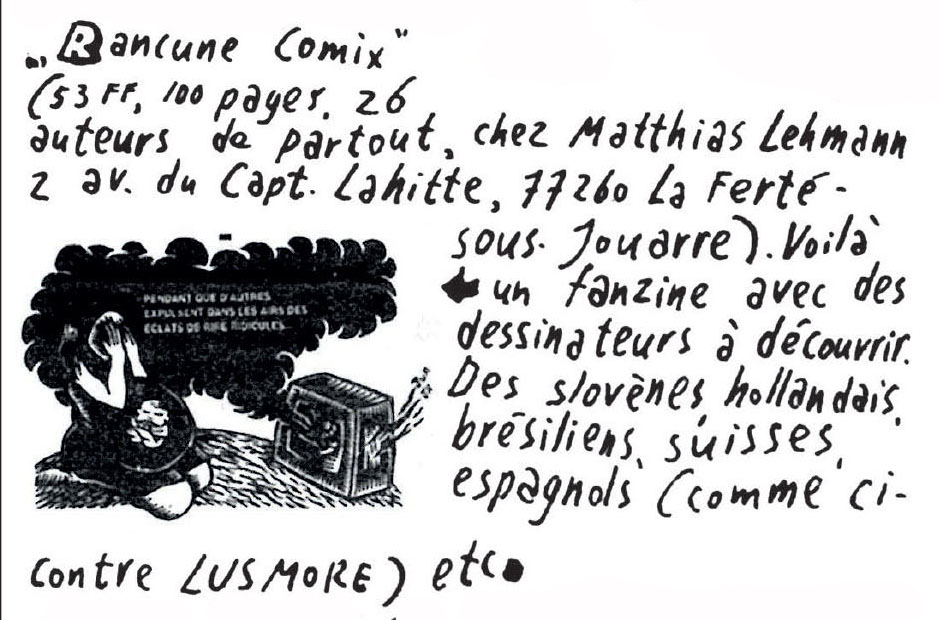 „Rancune Comix"
(53 FF, 100 pages, 26
auteurs de partout, chez Matthias Lehmann
2 av. du Capt. Lahitte, 77260 La Ferté-
sous-Jouarre). Voilà
un fanzine avec des
dessinateurs à découvrir.
Des slovènes, hollandais,
brésiliens, suisses,
espagnols (comme ci-
contre LUSMORE) etc.
PENDANT QUE D'AUTRES
EXPULSENT DANS LES AIRS DES
ÉCLATS DE RIRE RIDICULES